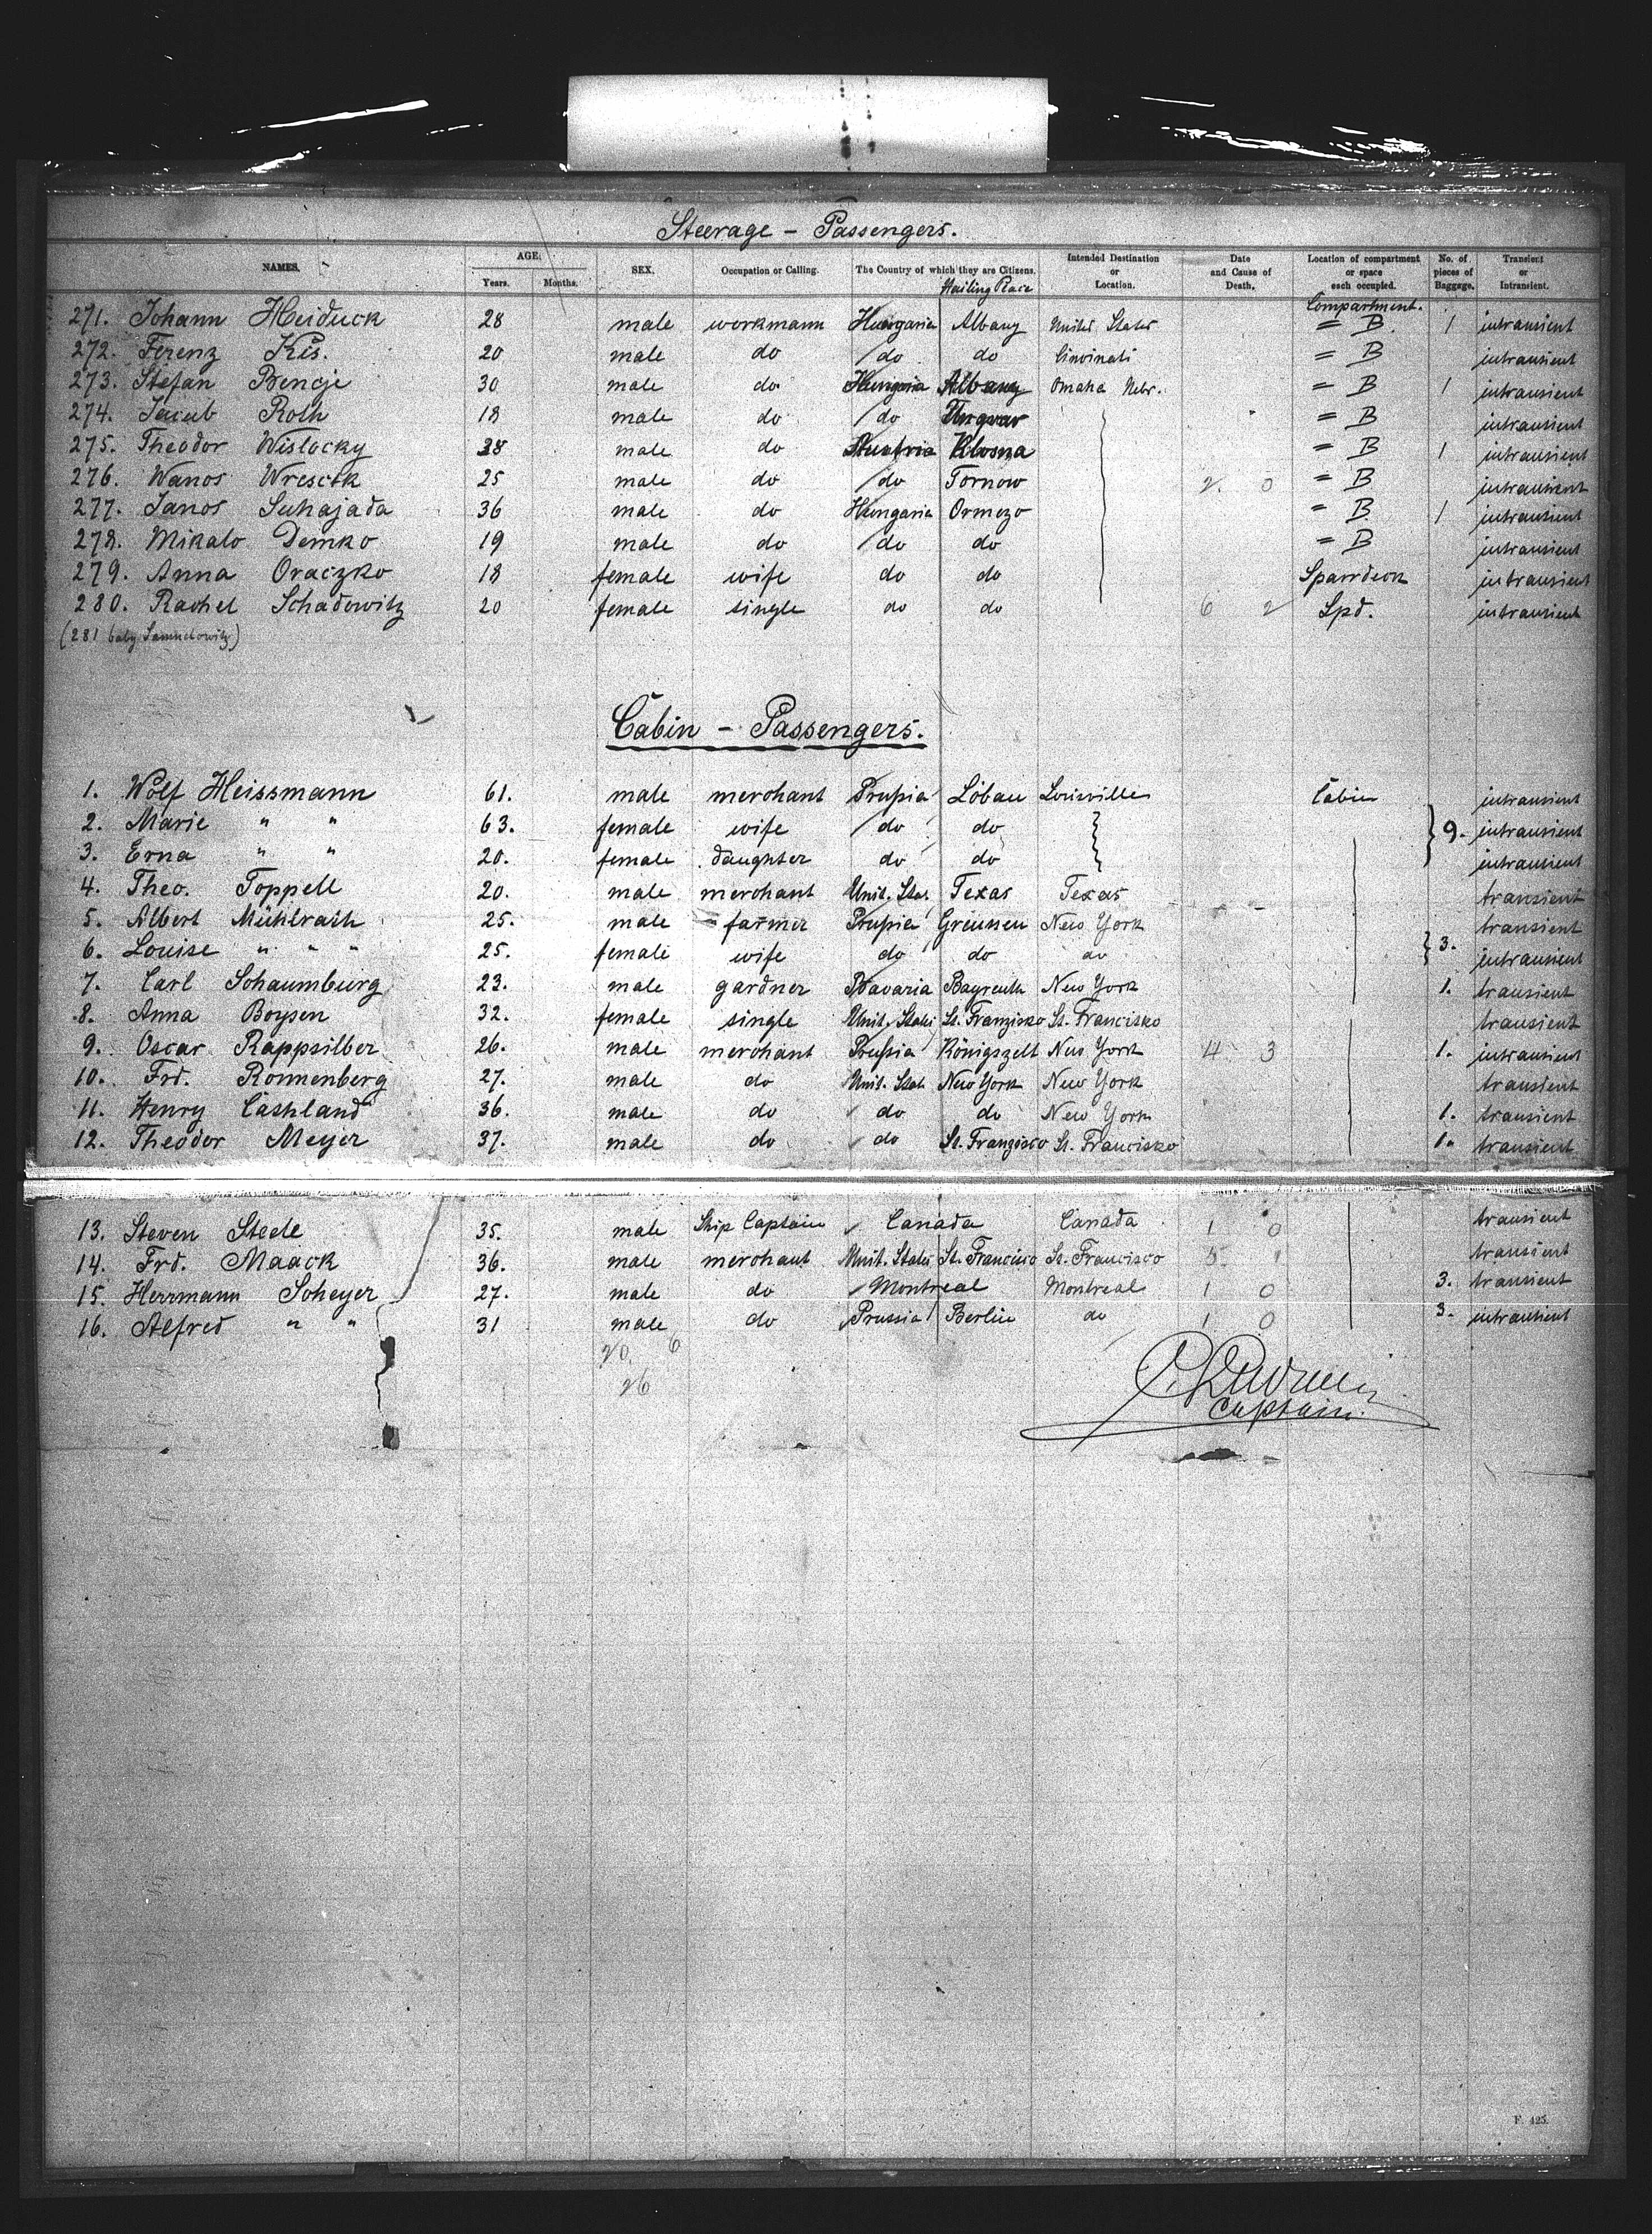 Steerage - Passengers.
NAMES. AGE. Years. Months. SEX. Occupation or Calling. The Country of which they are Citizens. Intended Destination or Location. Date and Cause of Death. Location of compartment or space each occupied. No. of pieces of Baggage. Transient or Intransient.
Hailing Place
Compartment.
271. Johann Heiduck 28 male workmann Hungaria Albany United States = B. 1 intransient
272. Ferenz Kis. 20 male do do do Cincinati = B intransient
273. Stefan Bencje 30 male do Hungaria Albany Omaha Nebr. = B 1 intransient
274. Jacub Roth 18 male do do Ungvar = B intransient
275. Theodor Wislocky 28 male do Austria Klosna = B 1 intransient
276. Wanos Wresctk 25 male do do Tornow 2. 0 = B intransient
277. Janos Suhajada 36 male do Hungaria Ormezo = B 1 intransient
278. Mikalo Demko 19 male do do do = B intransient
279. Anna Oraczko 18 female wife do do Sparrdeck intransient
280. Rachel Schadowitz 20 female single do do 6 2 Spd. intransient
(281 baby Samudowitz)
Cabin - Passengers.
1. Wolf Heissmann 61. male merchant Prussia Löbau Louisville Cabin intransient
2. Marie " " 63. female wife do do 9. intransient
3. Erna " " 20. female daughter do do intransient
4. Theo. Toppell 20. male merchant Unit. Stat. Texas Texas transient
5. Albert Mühlrath 25. male farmer Prussia Greussen New York transient
6. Louise " " " 25. female wife do do do 3. intransient
7. Carl Schaumburg 23. male gardner Bavaria Bayreuth New York 1. transient
8. Anna Boysen 32. female single Unit. States St. Franzisko St. Francisko transient
9. Oscar Rappsilber 26. male merchant Prussia Königszelt New York 4 3 1. intransient
10. Frd. Ronnenberg 27. male do Unit. Stat. New York New York transient
11. Henry Cashland 36. male do do do New York 1. transient
12. Theodor Meyer 37. male do do St. Franzisco St. Francisko 1. transient
13. Steven Steele 35. male Ship Captain Canada Canada 1 0 transient
14. Frd. Maack 36. male merchant Unit. States St. Francisco St. Francisco 5. 1 transient
15. Herrmann Scheyer 27. male do Montreal Montreal 1 0 3. transient
16. Alfred " " 31 male do Prussia Berlin do 1 0 3. intransient
20. 6
26
Captain.
F. 425.